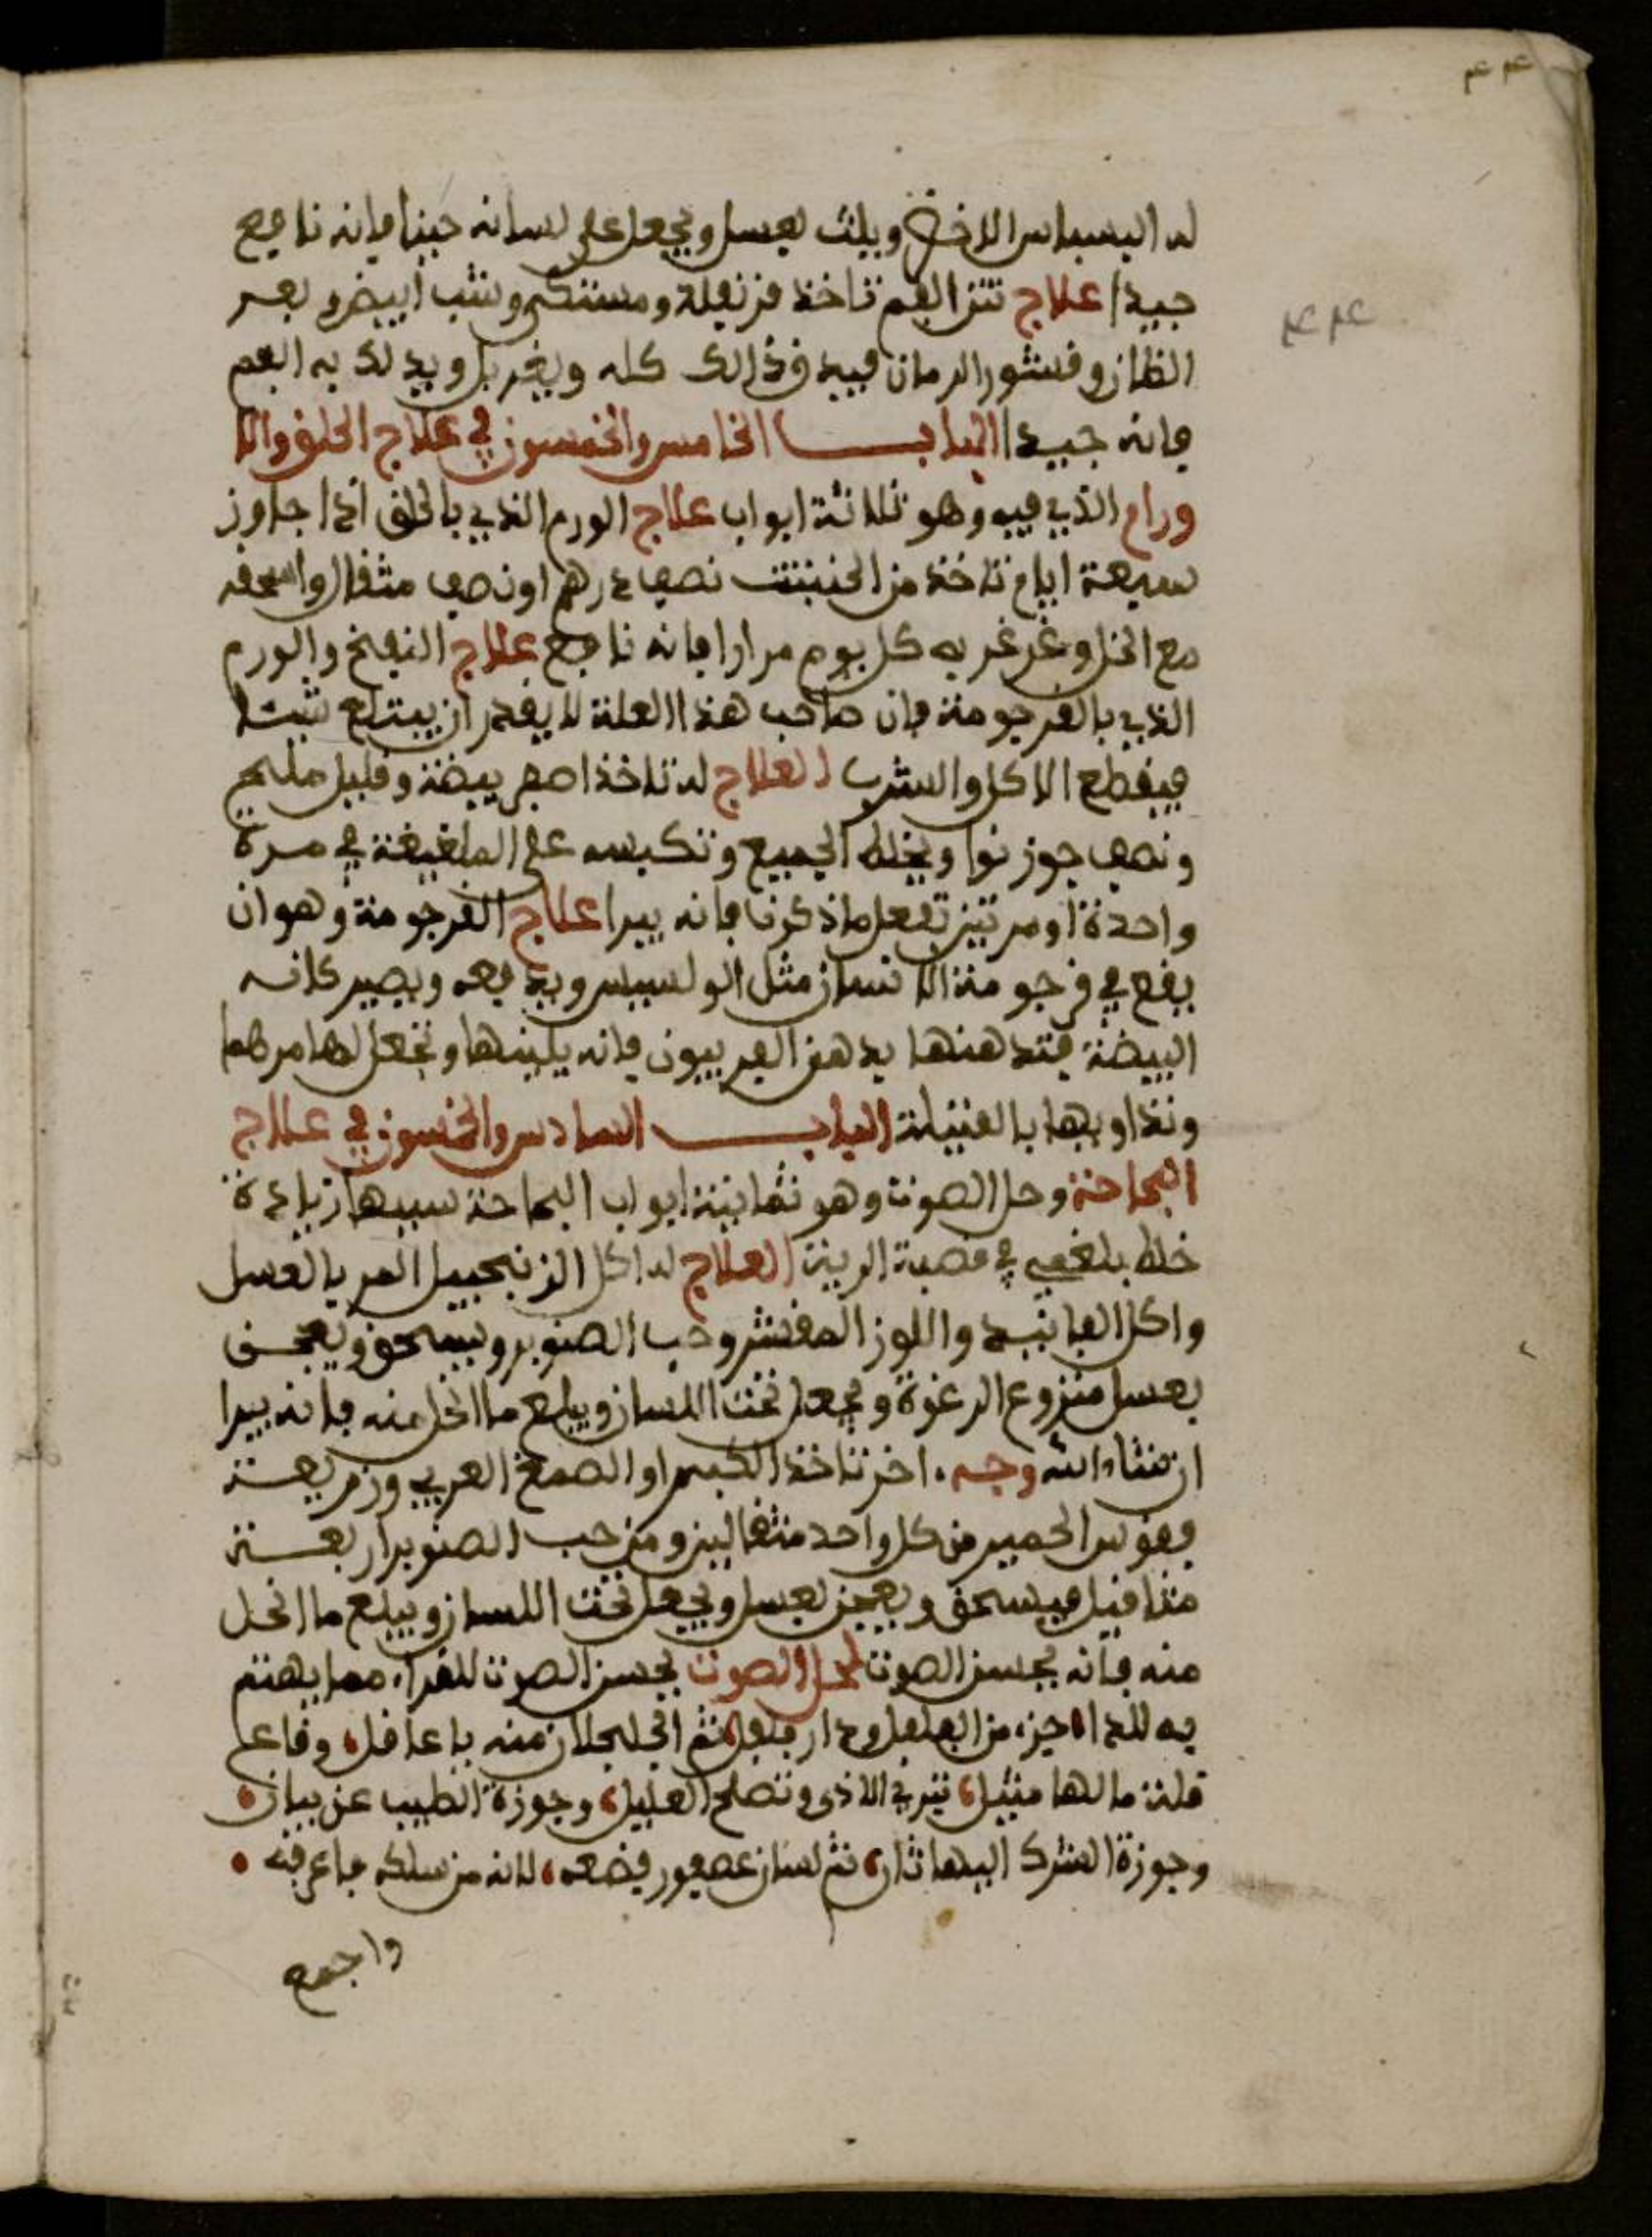 ٤٤
٤٤
له البسباس الاخضر ويلث بعسل ويجعل على لسانه حينا فإنه نافع
جيدا علاج نتن الفم تاخذ قرنفلة ومستكى وشب ابيض وبعر
الظان وقشور الرمان فيدق ذالك كله ويغربل ويدلك به الفم
فانه جيد الباب الخامس والخمسون في علاج الحلق والا
ورام الذي فيه وهو ثلاثة ابواب علاج الورم الذي بالحلق اذا جاوز
سبعة ايام تاخذ من الحنتيت نصف درهم او نصف مثقال واسحقه
مع الخل وغرغر به كل يوم مرارا فإنه نافع علاج النفخ والورم
الذي بالقرجومة فإن صاحب هذا العلة لا يقدر ان يبتلع شيئا
فيقطع الاكل والشرب العلاج له تاخذ اصفر بيضة وقليل ملح
ونصف جوز نوا ويخلط الجميع وتكبسه على الملغيغة في مرة
واحدة او مرتين تفعل ما ذكرنا فإنه يبرا علاج القرجومة وهو ان
يقع في قرجومة الانسان مثل الولسيس ويدفعه ويصير كانه
البيضة فتدهنها بدهن الفربيون فإنه يلينها وتجعل لها مرهما
وتداويها بالفتيلة الباب السادس والخمسون في علاج
البحاحة وحل الصوت وهو ثمانية ابواب البحاحة سببها زيادة
خلط بلغمي في قصبة الرية العلاج له اكل الزنجبيل المربا بالعسل
واكل الفانيد واللوز المقشر وحب الصنوبر ويسحق ويعجن
بعسل منزوع الرغوة ويجعل تحت اللسان ويبلع ما انحل منه فإنه يبرا
ان شاء الله وجه اخر تاخذ الكثيرا والصمغ العربي وزريعة
فقوس الحمير من كل واحد مثقالين ومن حب الصنوبر اربعة
مثاقيل فيسحق ويعجن بعسل ويجعل تحت اللسان ويبلع ما انحل
منه فإنه يحسن الصوت لحل الصوت يحسن الصوت للقراء مما يهتم
به للداء جزء من الفلفل ودار فلفل ثم الجلجلان منه يا عاقل وقاع
قلة ما لها مثيل تبري الاذى وتصلح العليل وجوزة الطيب عن بيان
وجوزة الشرك اليها ثان ثم لسان عصفور فضعه لانه من سلكه فاعرفه
واجمع